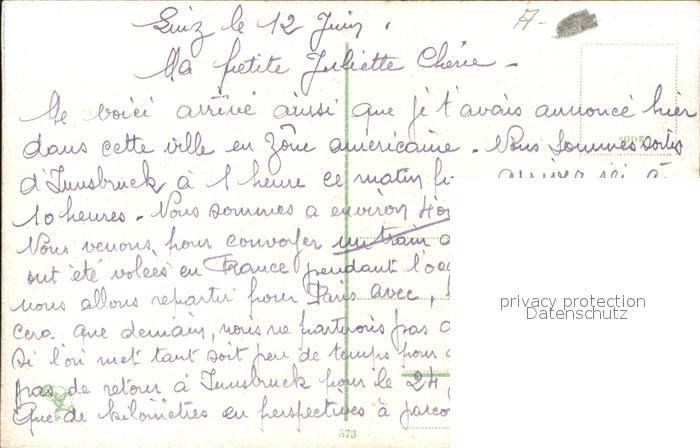 Linz le 12 Juin.
A-
Ma petite Juliette Chérie -
Me voici arrivé ainsi que je t'avais annoncé hier
dans cette ville en zône américaine. Nous sommes sortis
d'Innsbruck à 1 heure ce matin arriver ici à
10 heures - Nous sommes a environ
Nous venons pour convoyer un train
ont été volées en France pendant l'oc
nous allons repartir pour Paris avec,
cera que demain, nous ne partirons pas
Si l'on met tant soit peu de temps pour
pas de retour à Innsbruck pour le 24
Que de kilomètres en perspectives à parco
573
privacy protection
Datenschutz